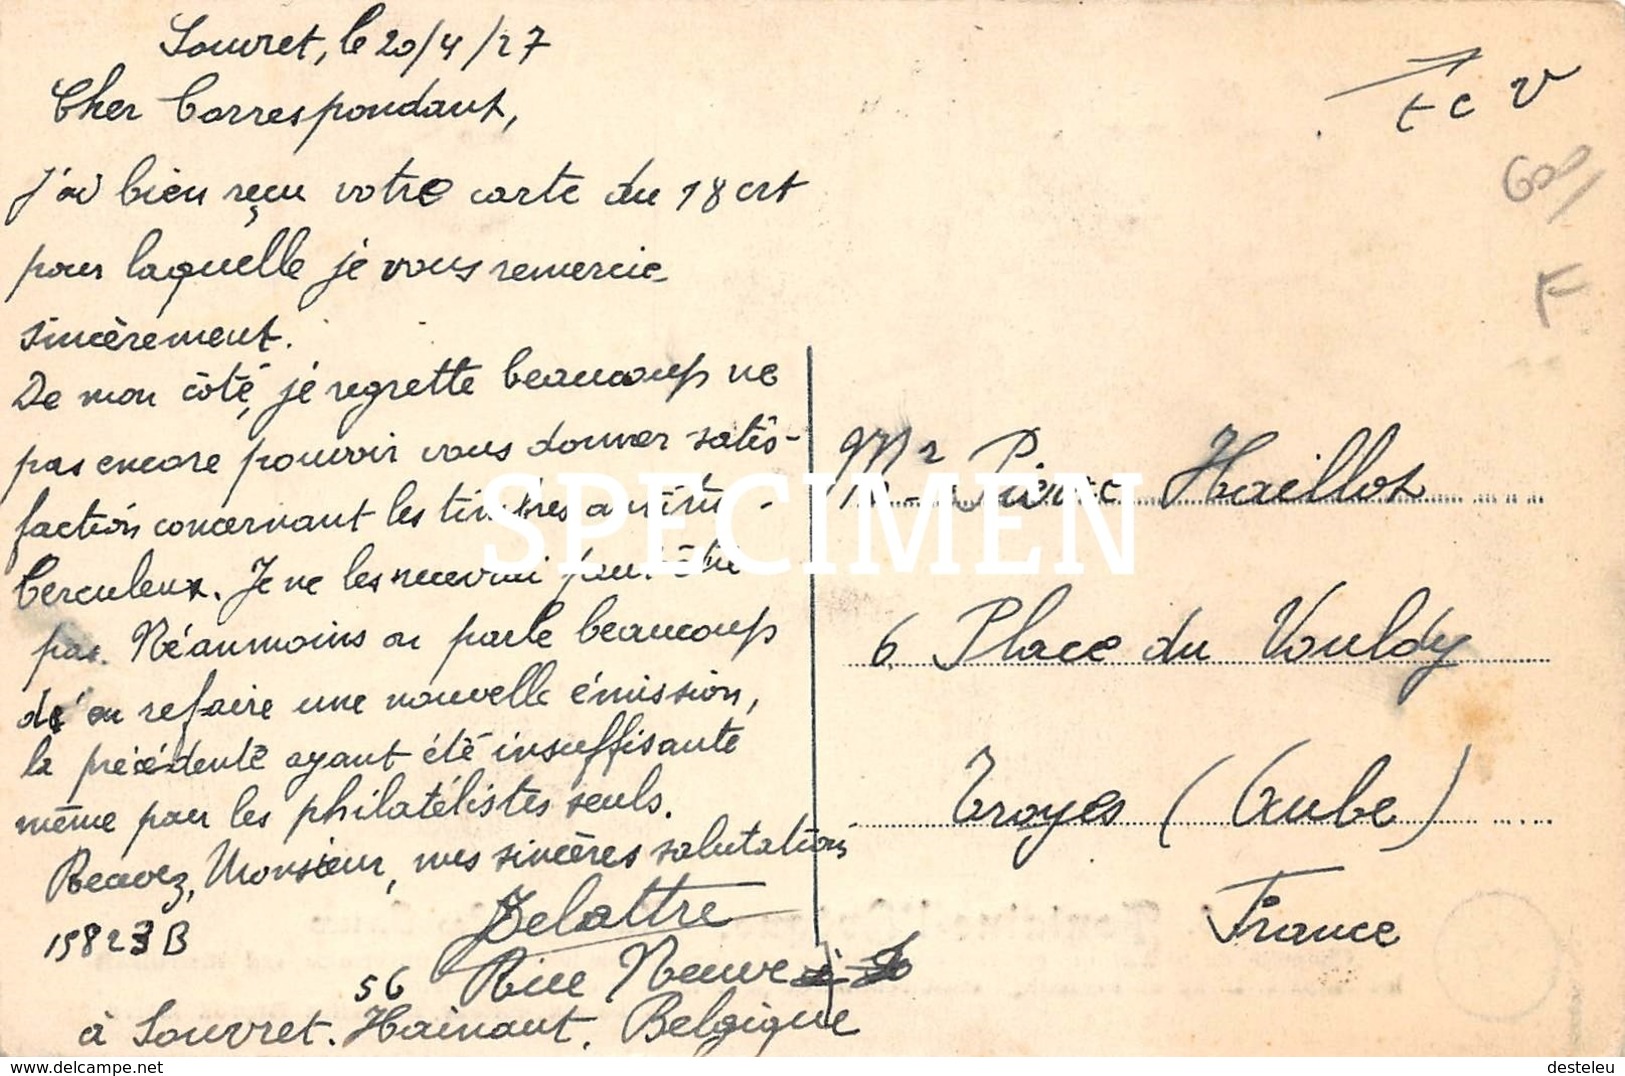 Souvret, le 20/4/27
Cher Correspondant,
J'ai bien reçu votre carte du 18 crt
pour laquelle je vous remercie
sincèrement.
De mon côté, je regrette beaucoup ne
pas encore pouvoir vous donner satis-
faction concernant les timbres antitu-
berculeux. Je ne les recevrai peut-être
pas. Néanmoins on parle beaucoup
d'en refaire une nouvelle émission,
la précédente ayant été insuffisante
même pour les philatélistes seuls.
Recevez, Monsieur, mes sincères salutations
Delattre
15823 B
56 Rue Neuve
à Souvret. Hainaut. Belgique
tc v
F
Mr Pierre Haillot
6 Place du Vouldy
Troyes (Aube)
France
SPECIMEN
www.delcampe.net
desteleu